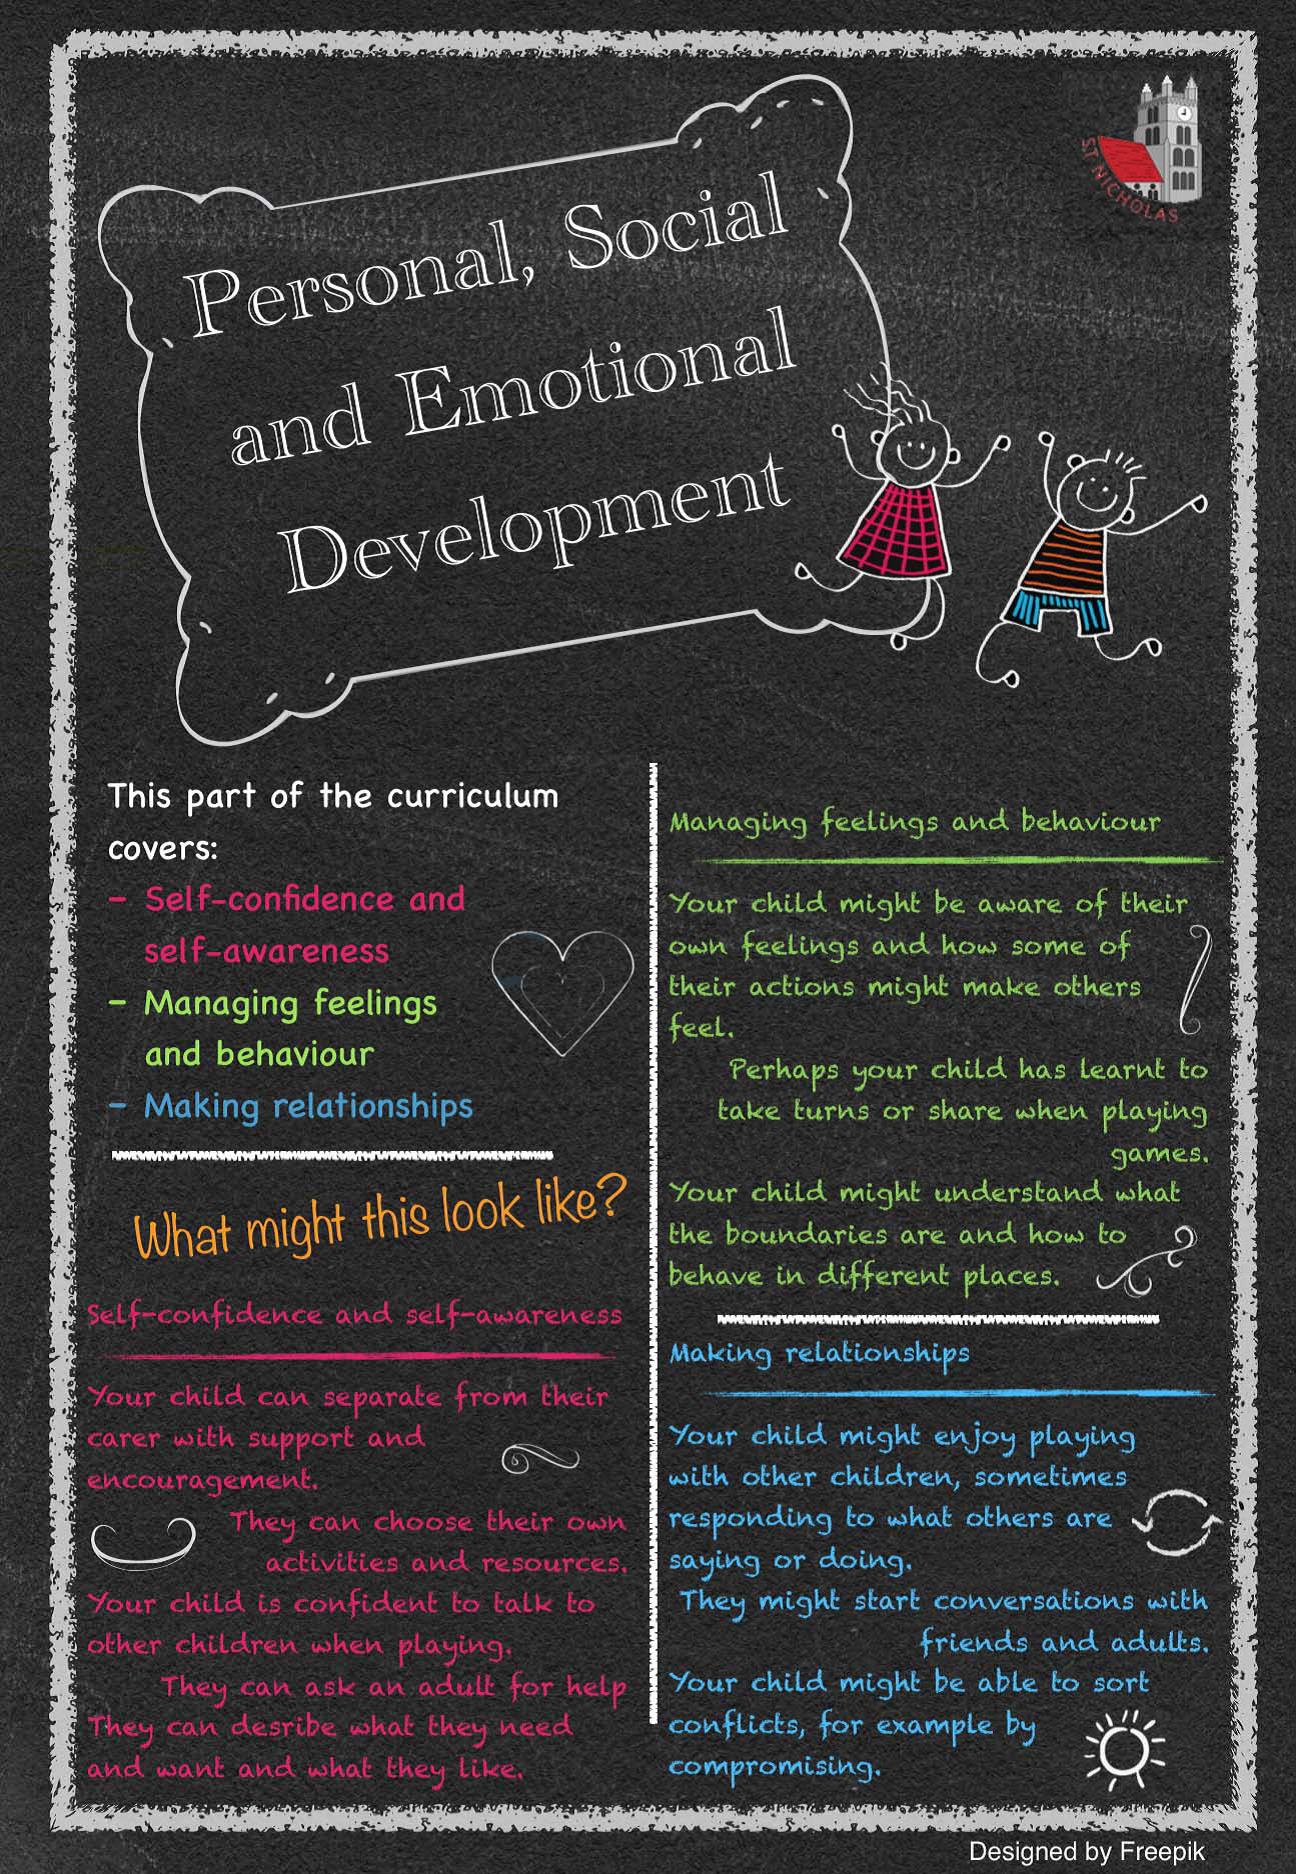 ST NICHOLAS
Personal, Social
and Emotional
Development
This part of the curriculum
covers:
- Self-confidence and
self-awareness
- Managing feelings
and behaviour
- Making relationships
What might this look like?
Self-confidence and self-awareness
Your child can separate from their
carer with support and
encouragement.
They can choose their own
activities and resources.
Your child is confident to talk to
other children when playing.
They can ask an adult for help
They can desribe what they need
and want and what they like.
Managing feelings and behaviour
Your child might be aware of their
own feelings and how some of
their actions might make others
feel.
Perhaps your child has learnt to
take turns or share when playing
games.
Your child might understand what
the boundaries are and how to
behave in different places.
Making relationships
Your child might enjoy playing
with other children, sometimes
responding to what others are
saying or doing.
They might start conversations with
friends and adults.
Your child might be able to sort
conflicts, for example by
compromising.
Designed by Freepik